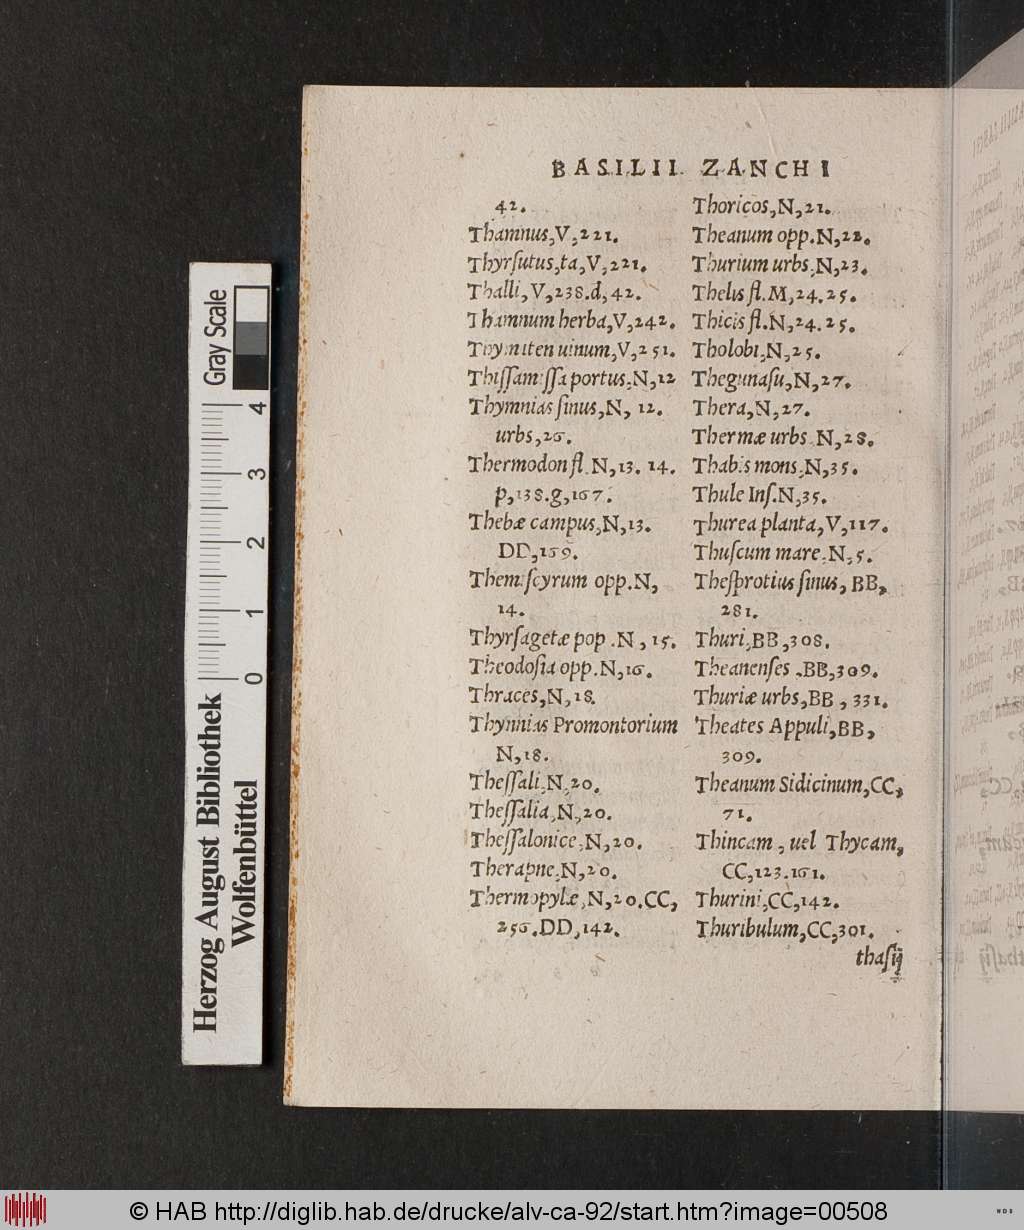 BASILII ZANCHI
42.
Thamnus,V,221.
Thyrsutus,ta,V,221.
Thalli,V,238.d,42.
Thamnum herba,V,242.
Thymiten uinum,V,251.
Thissamissa portus,N,12
Thymnias sinus,N, 12.
urbs,26.
Thermodon fl.N,13. 14.
p,138.g,167.
Thebæ campus,N,13.
DD,169.
Themiscyrum opp.N,
14.
Thyrsagetæ pop.N, 15.
Theodosia opp.N,16.
Thraces,N,18.
Thynnias Promontorium
N,18.
Thessali,N,20.
Thessalia,N,20.
Thessalonice,N,20.
Therapne,N,20.
Thermopylæ,N,20.CC,
256.DD,142.
Thoricos,N,21.
Theanum opp.N,22.
Thurium urbs,N,23.
Thelis fl.M,24.25.
Thicis fl.N,24.25.
Tholobi,N,25.
Thegunasu,N,27.
Thera,N,27.
Thermæ urbs N,28.
Thabis mons,N,35.
Thule Ins.N,35.
Thurea planta,V,117.
Thuscum mare.N,5.
Thesprotius sinus, BB,
281.
Thuri,BB,308.
Theanenses.BB,309.
Thuriæ urbs,BB, 331.
Theates Appuli,BB,
309.
Theanum Sidicinum,CC,
71.
Thincam, uel Thycam,
CC,123.161.
Thurini,CC,142.
Thuribulum,CC,301.
thasij
Gray Scale
0 1 2 3 4
Herzog August Bibliothek
Wolfenbüttel
© HAB http://diglib.hab.de/drucke/alv-ca-92/start.htm?image=00508
WDB